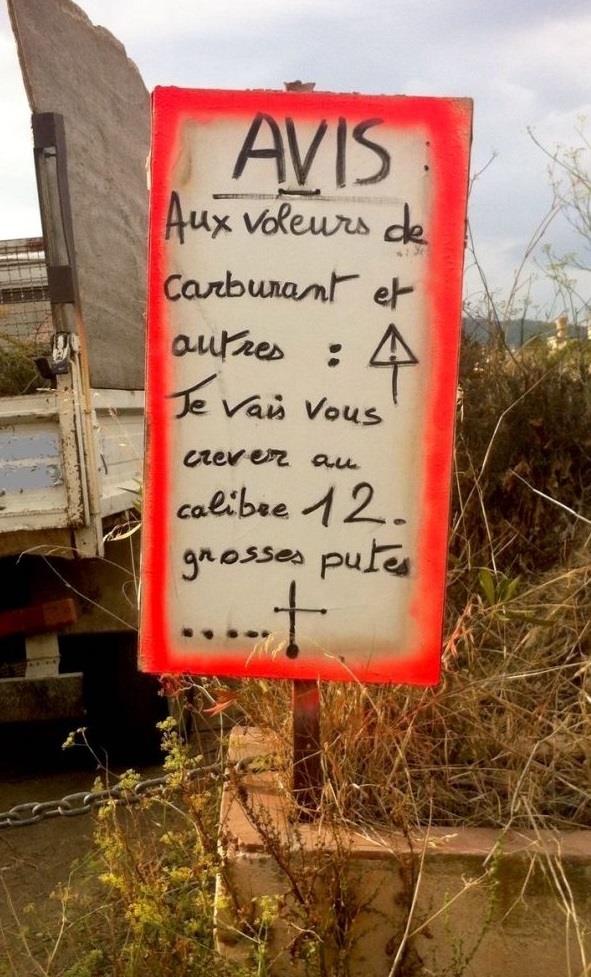 AVIS :
Aux voleurs de
carburant et
autres :
Je vais vous
crever au
calibre 12.
grosses putes
.....